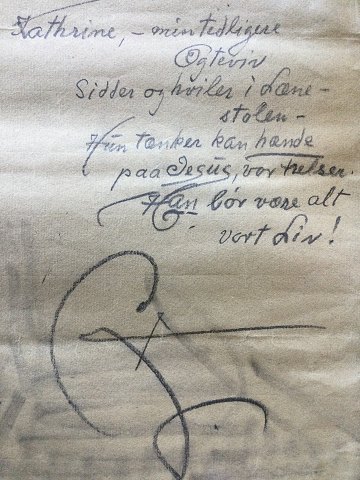 Kathrine, – min tidligere
Ogteviv
Sidder og hviler i Læne-
stolen –
Hun tænker kan hænde
paa Jesus, vor frelser.
Han bör være alt
vort Liv!